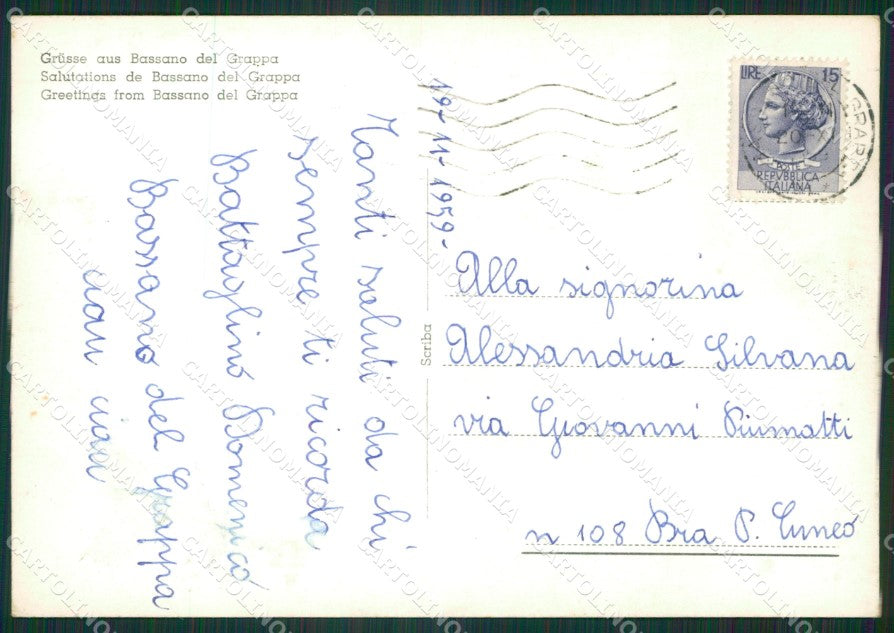 Grüsse aus Bassano del Grappa
Salutations de Bassano del Grappa
Greetings from Bassano del Grappa
19-11-1959-
Tanti saluti da chi
sempre ti ricorda
Battaglino Domenico
Bassano del Grappa
ciau ciau
Scriba
LIRE 15
POSTE
REPVBBLICA
ITALIANA
Alla signorina
Alessandria Silvana
via Giovanni Piumatti
n 108 Bra P. Cuneo
CARTOLINOMANIA